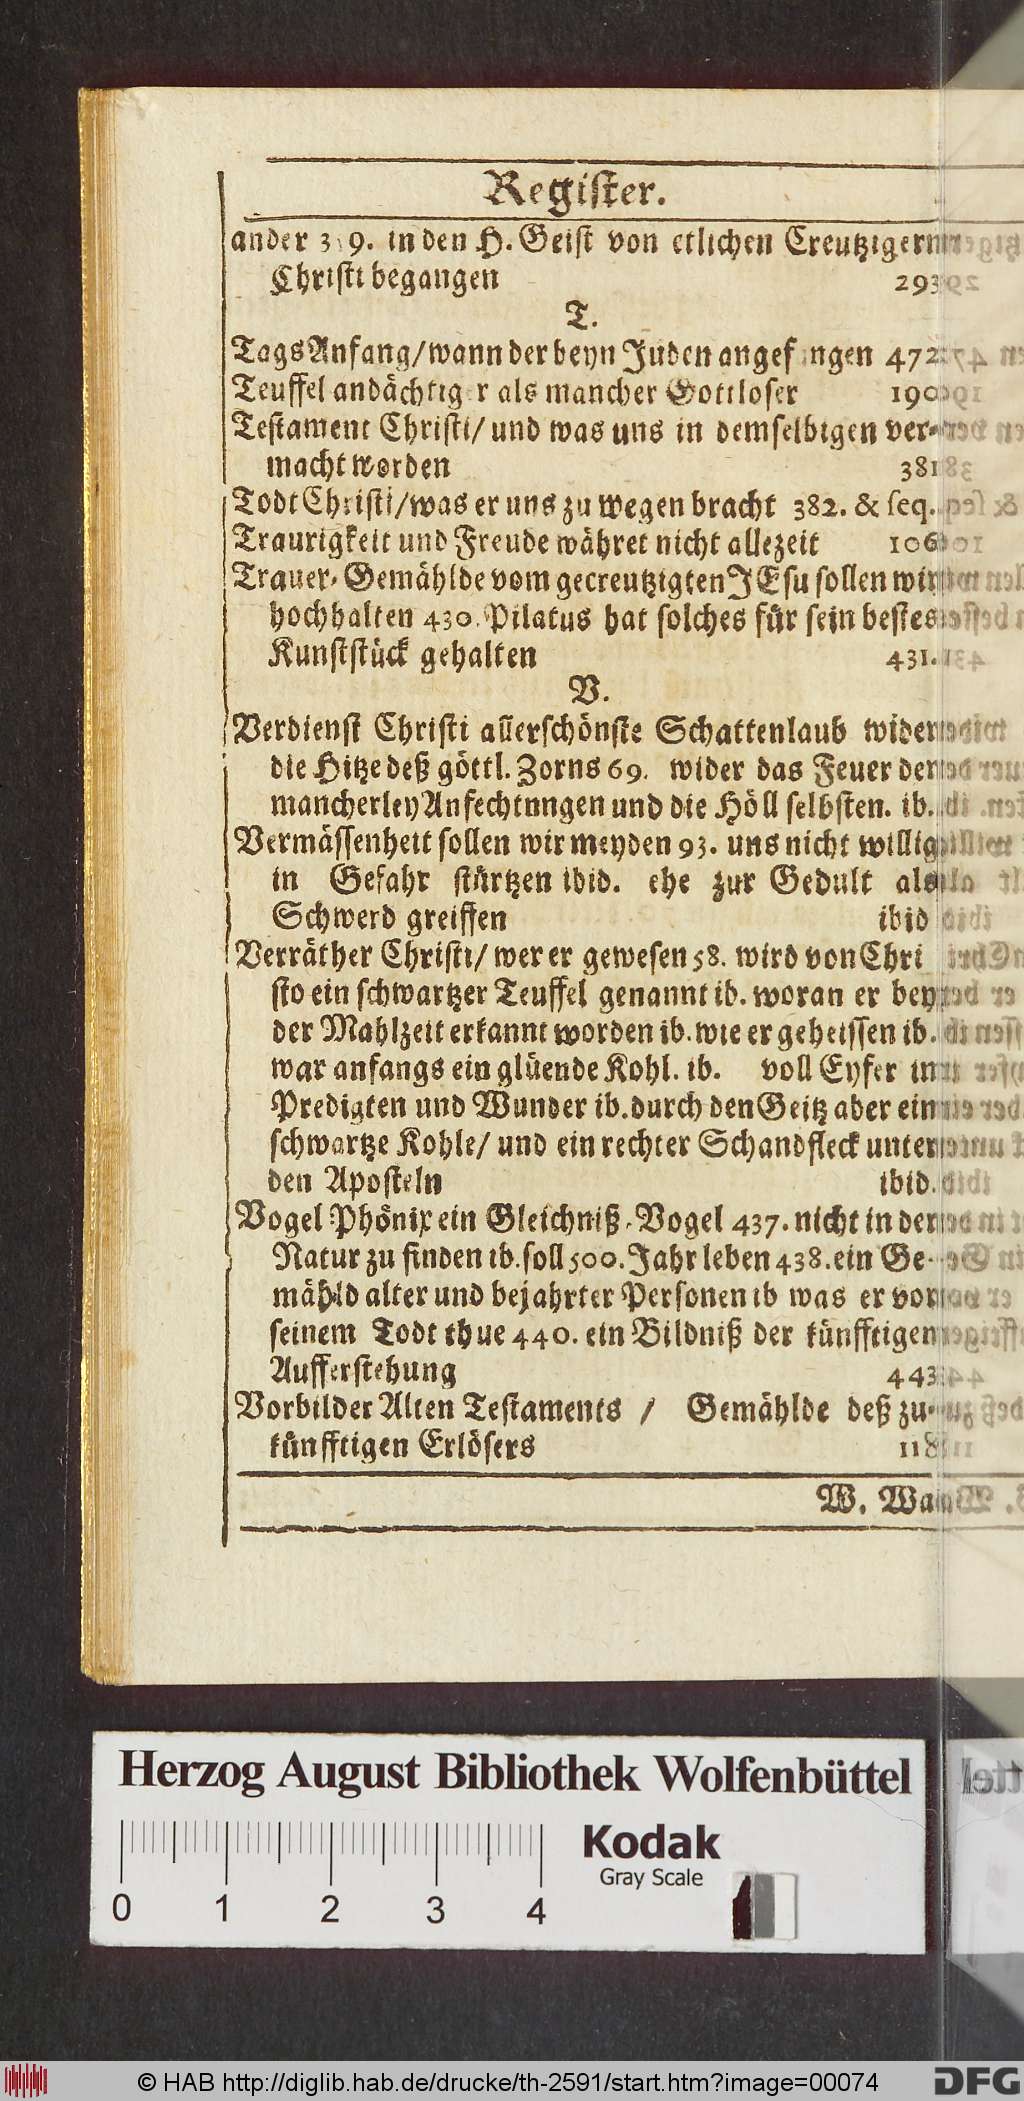 Register.
ander 3 9. in den H. Geist von etlichen Creutzigern
Christi begangen 293
T.
Tags Anfang/wann der beyn Juden angef ngen 472
Teuffel andächtig r als mancher Gottloser 190
Testament Christi/ und was uns in demselbigen ver-
macht worden 381
Todt Christi/was er uns zu wegen bracht 382. & seq.
Traurigkeit und Freude währet nicht allezeit 106
Trauer-Gemählde vom gecreutzigten JEsu sollen wir
hochhalten 430. Pilatus hat solches für sein bestes
Kunststück gehalten 431.
V.
Verdienst Christi allerschönste Schattenlaub wider
die Hitze deß göttl. Zorns 69. wider das Feuer der
mancherley Anfechtnngen und die Höll selbsten. ib.
Vermässenheit sollen wir meyden 93. uns nicht willig
in Gefahr stürtzen ibid. ehe zur Gedult als
Schwerd greiffen ibid
Verräther Christi/ wer er gewesen 58. wird von Chri
sto ein schwartzer Teuffel genannt ib. woran er bey
der Mahlzeit erkannt worden ib. wie er geheissen ib.
war anfangs ein glüende Kohl. ib. voll Eyfer in
Predigten und Wunder ib. durch den Geitz aber ein
schwartze Kohle/ und ein rechter Schandfleck unter
den Aposteln ibid.
Vogel Phönix ein Gleichniß-Vogel 437. nicht in der
Natur zu finden ib. soll 500. Jahr leben 438. ein Ge-
mähld alter und bejahrter Personen ib was er vor
seinem Todt thue 440. ein Bildniß der künfftigen
Aufferstehung 443
Vorbilder Alten Testaments / Gemählde deß zu-
künfftigen Erlösers 118
W. Wa
Herzog August Bibliothek Wolfenbüttel
Kodak
Gray Scale
0 1 2 3 4
© HAB http://diglib.hab.de/drucke/th-2591/start.htm?image=00074
DFG